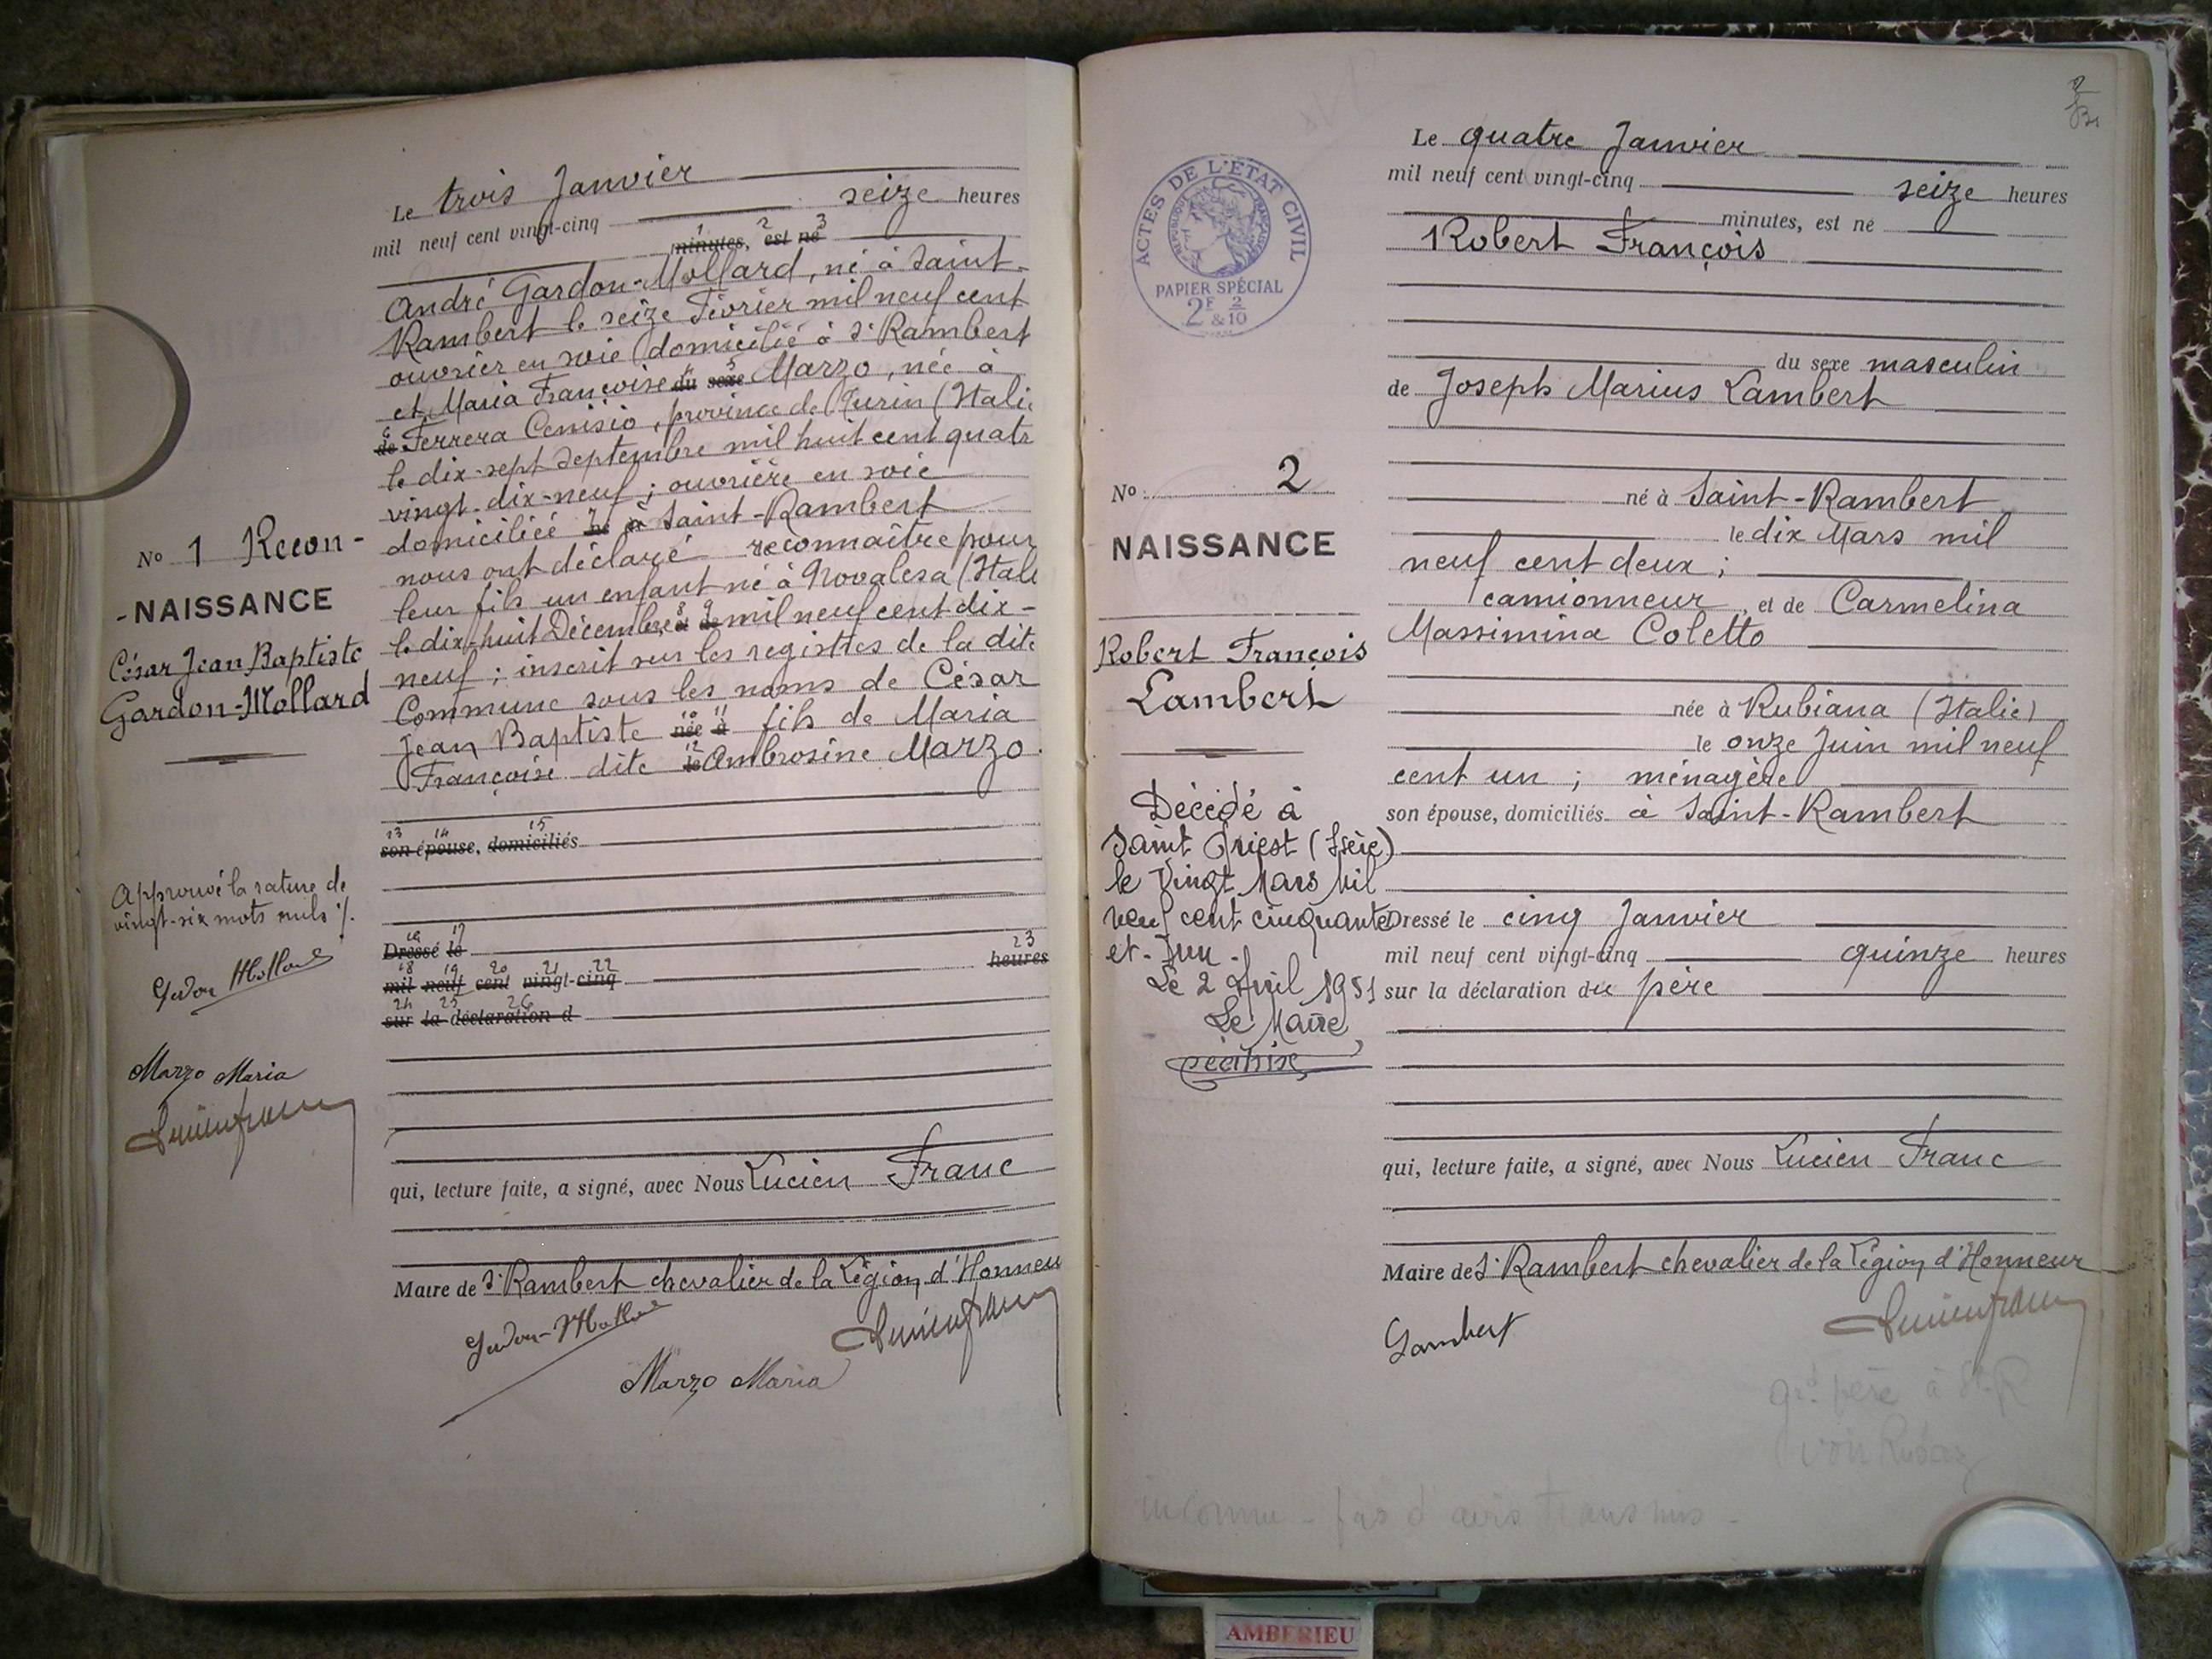 Le trois Janvier
mil neuf cent vingt-cinq seize heures
minutes, 1 est 2 né 3
André Gardon-Mollard, né à Saint-
Rambert le seize Février mil neuf cent
ouvrier en soie domicilié à St Rambert
et Maria Françoise du 4 sexe 5 Marzo, née à
de 6 Ferrera Cenisio, province de Turin (Italie
le dix-sept Septembre mil huit cent quatr
vingt-dix-neuf ; ouvrière en soie
domiciliée né à Saint-Rambert
nous ont déclaré reconnaître pour
leur fils un enfant né à Novalesa (Itali
le dix-huit Décembre 8 9 mil neuf cent dix-
neuf ; inscrit sur les registres de la dite
Commune sous les noms de César
Jean Baptiste née 10 à 11 fils de Maria
Françoise dite le 12 Ambrosine Marzo.
son 13 épouse, 14 domiciliés 15
Dressé 16 le 17
mil 18 neuf 19 cent 20 vingt 21-cinq 22 heures 23
sur 24 la 25 déclaration d 26
qui, lecture faite, a signé, avec Nous Lucien Franc
Maire de St Rambert chevalier de la Légion d'Honneu
Marzo Maria
No 1 Recon-
-NAISSANCE
César Jean Baptiste
Gardon-Mollard
Approuvé la rature de
vingt-six mots nuls ./.
Marzo Maria
2
ACTES DE L'ÉTAT CIVIL
RÉPUBLIQUE FRANÇAISE
PAPIER SPÉCIAL
2F & 2/10
No 2
NAISSANCE
Robert François
Lambert
Décédé à
Saint Priest (Isère)
le Vingt Mars Mil
neuf cent cinquante
et-un.
Le 2 Avril 1951
Le Maire,
Le quatre Janvier
mil neuf cent vingt-cinq seize heures
minutes, est né
Robert François
du sexe masculin
de Joseph Marius Lambert
né à Saint-Rambert
le dix Mars mil
neuf cent deux ;
camionneur, et de Carmelina
Massimina Coletto
née à Rubiana (Italie)
le onze Juin mil neuf
cent un ; ménagère
son épouse, domiciliés à Saint-Rambert
Dressé le cinq Janvier
mil neuf cent vingt-cinq quinze heures
sur la déclaration du père
qui, lecture faite, a signé, avec Nous Lucien Franc
Maire de St Rambert chevalier de la Légion d'Honneur
Lambert
gd père à St-R
voir
inconnu - pas d'avis transmis -
AMBERIEU